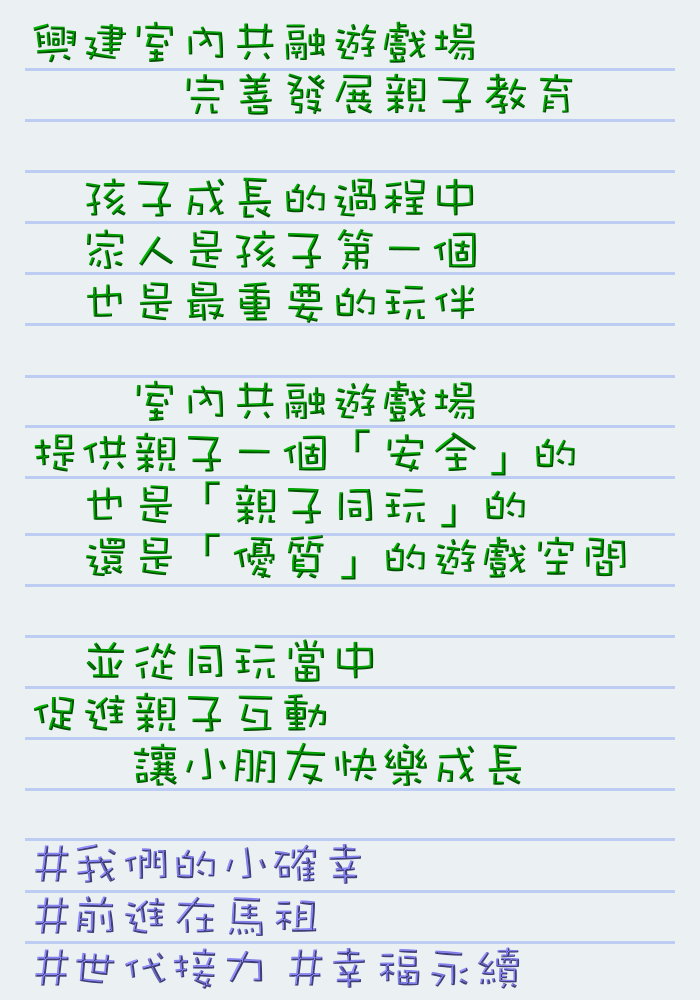 興建室內共融遊戲場
完善發展親子教育
孩子成長的過程中
家人是孩子第一個
也是最重要的玩伴
室內共融遊戲場
提供親子一個「安全」的
也是「親子同玩」的
還是「優質」的遊戲空間
並從同玩當中
促進親子互動
讓小朋友快樂成長
#我們的小確幸
#前進在馬祖
#世代接力 #幸福永續